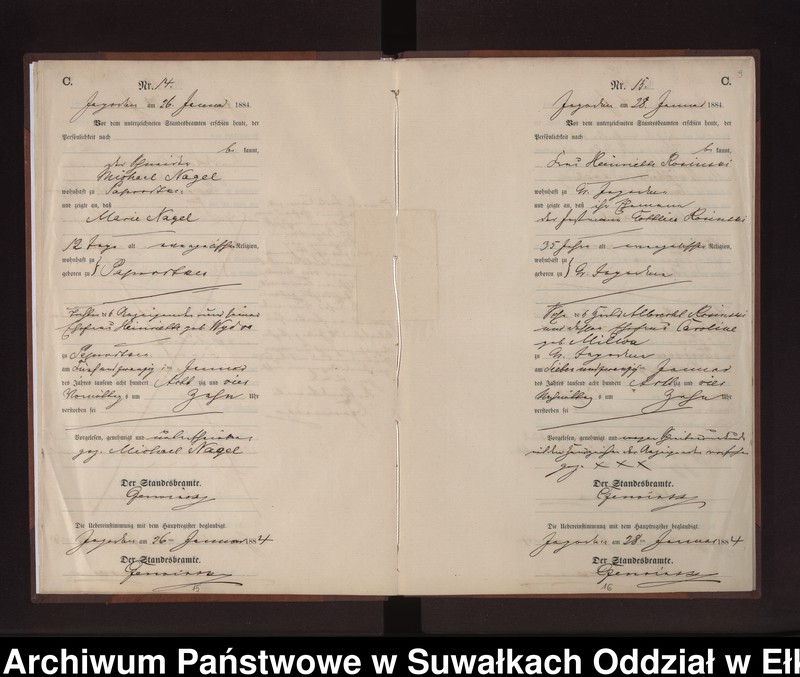 C.
Nr. 14.
Jagodnen am 26. Januar 1884.
Vor dem unterzeichneten Standesbeamten erschien heute, der
Persönlichkeit nach
be kannt,
der
Michael Nagel
wohnhaft zu
und zeigte an, daß
Marie Nagel
12 Tage alt evangelischer Religion,
wohnhaft zu
geboren zu
Tochter des Anzeigenden und seiner
Ehefrau Heinriette geb
zu
am Fünf und zwanzig ten Januar
des Jahres tausend acht hundert Acht zig und vier
Vormittag s um Zehn Uhr
verstorben sei
Vorgelesen, genehmigt und unterschrieben
gez. Michael Nagel
Der Standesbeamte.
Die Uebereinstimmung mit dem Hauptregister beglaubigt.
Jagodnen am 26 ten Januar 1884
Der Standesbeamte.
15
C.
Nr. 15.
Jagodnen am 28. Januar 1884.
Vor dem unterzeichneten Standesbeamten erschien heute, der
Persönlichkeit nach
be kannt,
Frau Heinriette Rosinski
wohnhaft zu Gr. Jagodnen
und zeigte an, daß ihr Ehemann
der Gottlieb Rosinski
35 Jahre alt evangelischer Religion,
wohnhaft zu
geboren zu Gr. Jagodnen
Sohn des Albrecht Rosinski
und dessen Ehefrau Caroline
geb
zu Gr. Jagodnen
am Sieben und zwanzig ten Januar
des Jahres tausend acht hundert Acht zig und vier
Nachmittag s um Zehn Uhr
verstorben sei
Vorgelesen, genehmigt und wegen
mit den Handzeichen der Anzeigenden versehen
gez. X X X
Der Standesbeamte.
Die Uebereinstimmung mit dem Hauptregister beglaubigt.
Jagodnen am 28 ten Januar 1884
Der Standesbeamte.
16
Archiwum Państwowe w Suwałkach Oddział w Eł